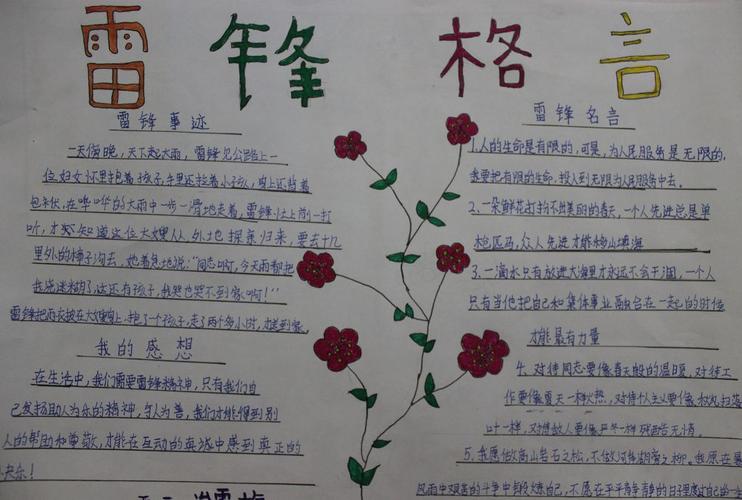 雷锋格言
雷锋事迹
一天傍晚,天下起大雨,雷锋见公路上一
位妇女怀里抱着孩子,手里还拉着小孩,肩上还背着
包袱,在哗哗的大雨中一步一滑地走着,雷锋赶上前一打
听,才知道这位大嫂从外地探亲归来,要去十几
里外的樟子沟去,她着急地说:“同志啊,今天雨都把
我浇迷糊了,这还有孩子,我哭也哭不到家啊!”
雷锋把雨衣披在大嫂身上,抱了一个孩子,走了两个多小时,才送到家。
我的感想
在生活中,我们需要雷锋精神,只有我们自
己发扬助人为乐的精神,与人为善,我们才能得到别
人的帮助和尊敬,才能在互动的真诚中感到真正的
快乐!
雷锋名言
1.人的生命是有限的,可是,为人民服务是无限的,
我要把有限的生命,投入到无限为人民服务中去。
2、一朵鲜花打扮不出美丽的春天,一个人先进总是单
枪匹马,众人先进才能移山填海
3、一滴水只有放进大海里才永远不会干涸,一个人
只有当他把自己和集体事业融合在一起的时候
才能最有力量
4、对待同志要像春天般的温暖,对待工
作要像夏天一样火热,对待个人主义要像秋风扫落
叶一样,对待敌人要像严冬一样残酷无情。
5、我愿做高山岩石之松,不做河岸湖旁之柳。我愿在暴
风雨中艰苦的斗争中锻炼自己,不愿在平平静静的日子里度过自己的一